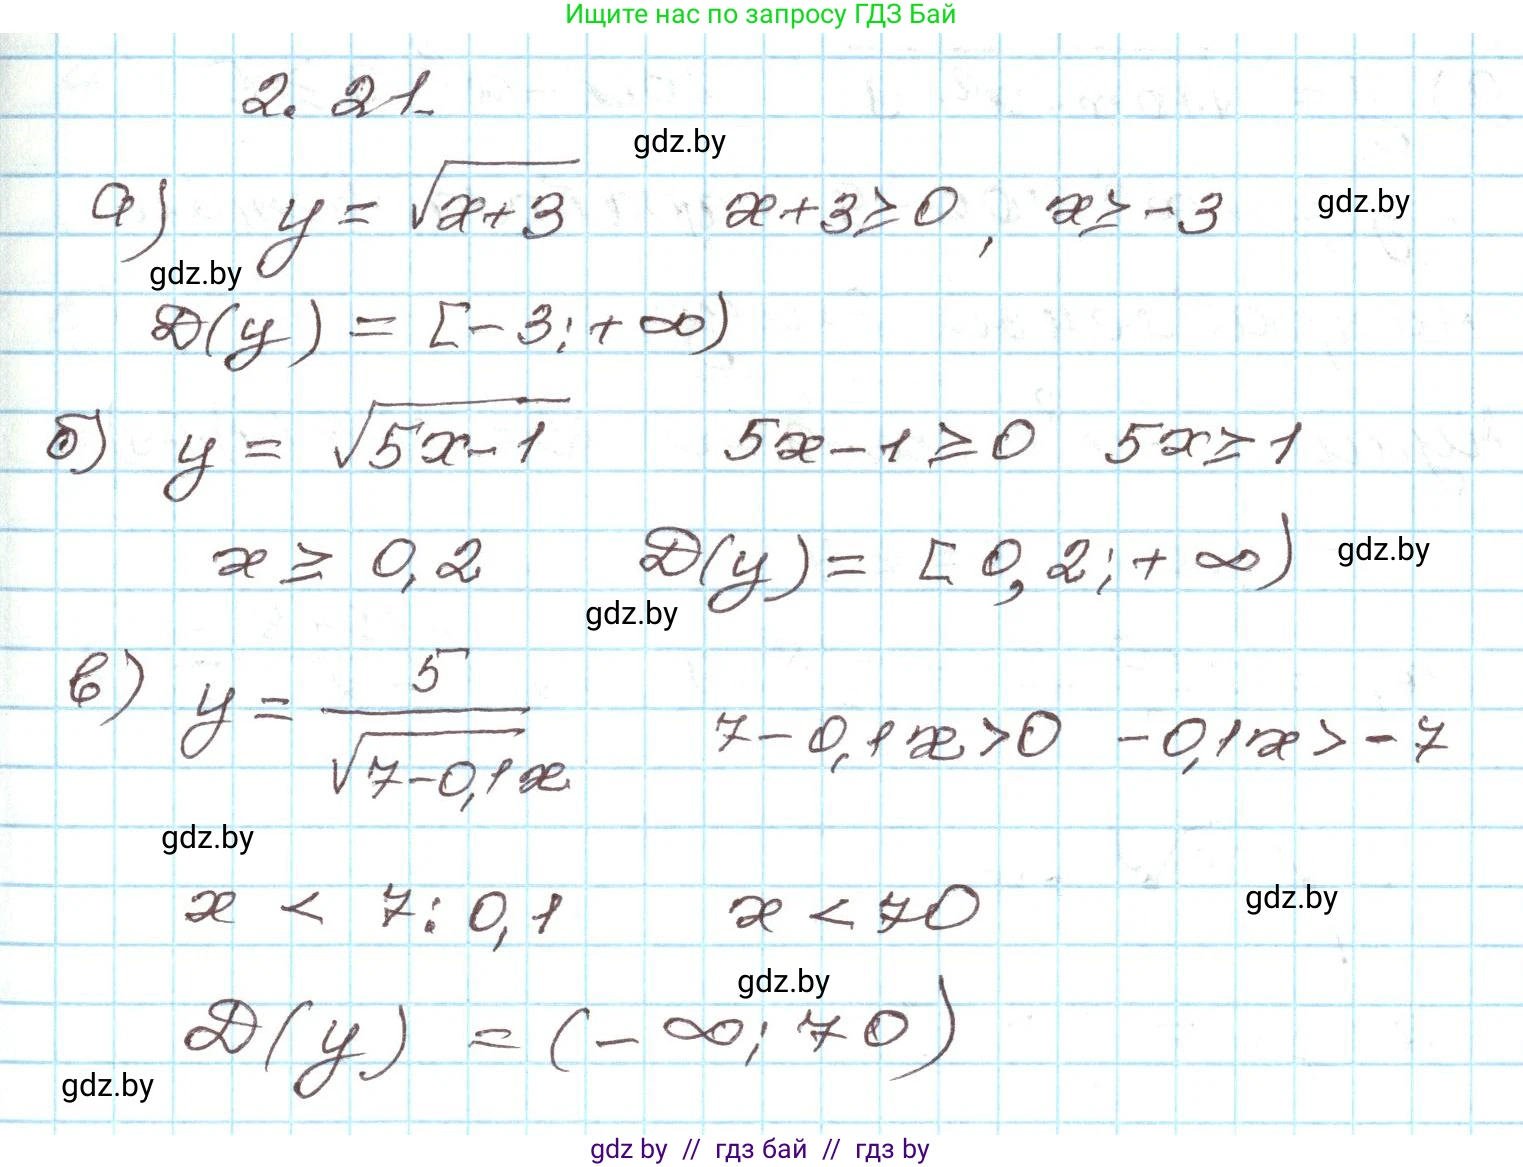 Ищите нас по запросу ГДЗ Бай
2. 21.
gdz.by
а) y = √(x+3) x+3≥0, x≥-3
gdz.by
gdz.by
D(y) = [-3; +∞)
б) y = √(5x-1) 5x-1≥0 5x≥1
x ≥ 0,2 D(y) = [0,2; +∞)
gdz.by
gdz.by
в) y = 5/√(7-0,1x) 7-0,1x>0 -0,1x>-7
gdz.by
x < 7:0,1 x<70
gdz.by
gdz.by
D(y) = (-∞; 70)
gdz.by
gdz by // гдз бай // гдз by